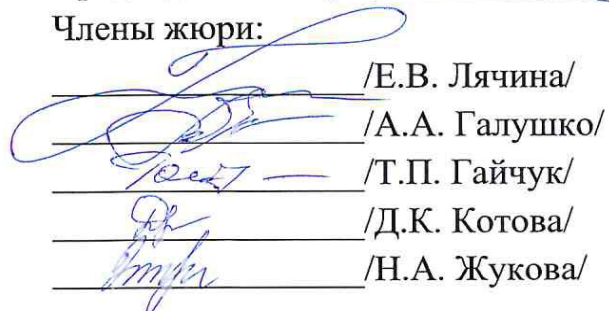 Члены жюри:
/Е.В. Лячина/
/А.А. Галушко/
/Т.П. Гайчук/
/Д.К. Котова/
/Н.А. Жукова/